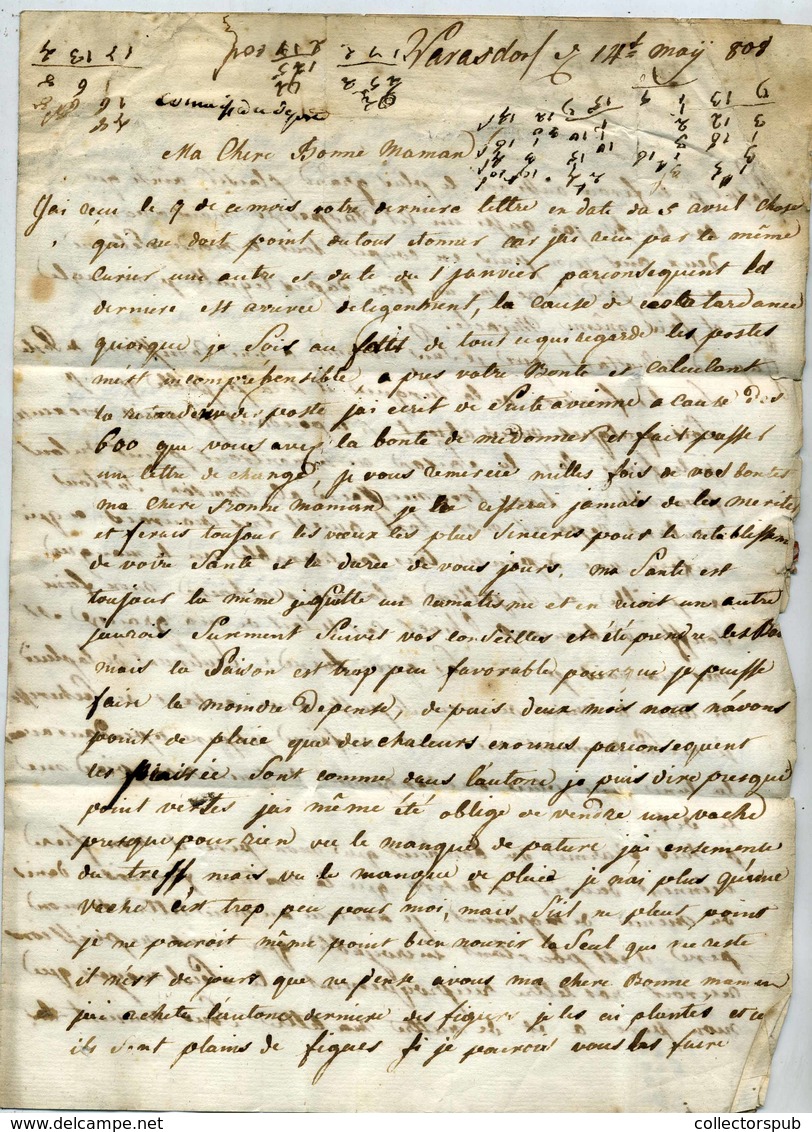 Warasdorf 14t may 808
Ma Chere Bonne Maman
J'ai recu le 9 de ce mois votre derniere lettre en date du 5 avril chose
qui ne doit point du tous etonner car j'ai recu par le même
Curier une autre et date du 1 janvier parconsequent la
derniere est arrivée deligenment, la cause de cette tardance
quoique je sois au faits de tout ce qui regarde les postes
m'est incompréhensible, apres votre Bonte et calculant
la poste j'ai ecrit de suite a vienne a cause des
600 que vous avez la bonte de me donner et fait passer
une lettre de change, je vous remercie milles fois de vos bontes
ma chere Bonne maman je ne cesserai jamais de les merites
et ferais toujour les vœux les plus sinceres pour le retablissem
de votre Santé et la durée de vous jours. ma Sante est
toujour la même je quitte un rumatisme et en recoit un autre
j'aurois Surement Suivet vos conseilles et été prendre les
mais la Saison est trop peu favorable pour que je puisse
faire la moindre depense, depuis deux mois nous n'avons
point de pluie que des chaleurs enormes parconsequent
les sont comme dans l'autone je puis dire presque
point vertes j'ai même été oblige de vendre une vache
presque pour rien vu le manque de pature j'ai ensemente
du treff mais vu le manque de pluie je n'ai plus qu'une
vache c'est trop peu pour moi, mais S'il ne pleut point
je ne pourroit même point bien nourir la Seul que me reste
il n'est de jours que ne pense a vous ma chere Bonne maman
j'ai achete l'autone derniere des figues je les ai plantes et
ils sont plains de figues si je pouvois vous les faire
collectorspub